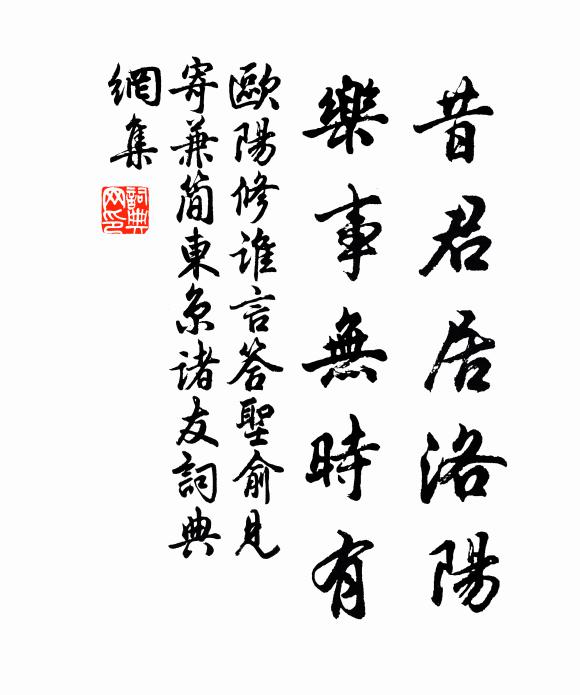 昔君居洛陽
樂事無時有
歐陽修誰言答聖俞見
寄兼簡東京諸友詞典
網集
詞典網印